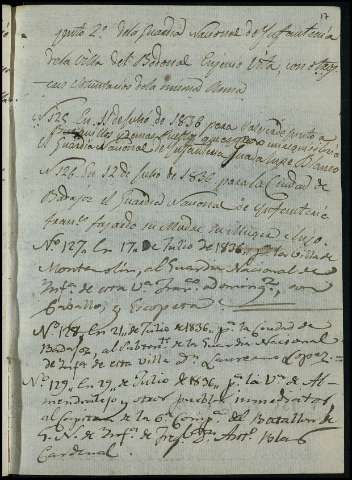 17
junto 2º de la Guardia Nacional de Ynfanteria
de la Villa del Bodonal Eugenio Vita, con
Voluntarios de la misma Arma
Nº 125. En 11 de Julio de 1836 para
el Guardia Nacional de Ynfanteria Guadalupe Blanco
Nº 126. En 12 de Julio de 1836 para la Ciudad de
Badajoz el Guardia Nacional de Ynfanteria
Franco Fajardo su Madre su Muger e hijo.
Nº 127. en 17 de Julio de 1836 pª la Villa de
Montemolin, al Guardia Nacional de
Ynfª de esta Vª Franº Adominguez, con
Caballo, y Escopeta
Nº 128, En 21 de Julio de 1836. pª la Ciudad de
Badajoz, al Sarbtº de la Guardia Nacional
de Ynfª de esta villa Dn Laureano Lopez
Nº 129. en 29, de Julio de 1836. pª la Vª de Al-
mendralejo y otros pueblos inmediatos
al Capitan de la 6ª Compª del Batallon de
G. N. de Ynfª de Dn Antº Blas
Cardenal.